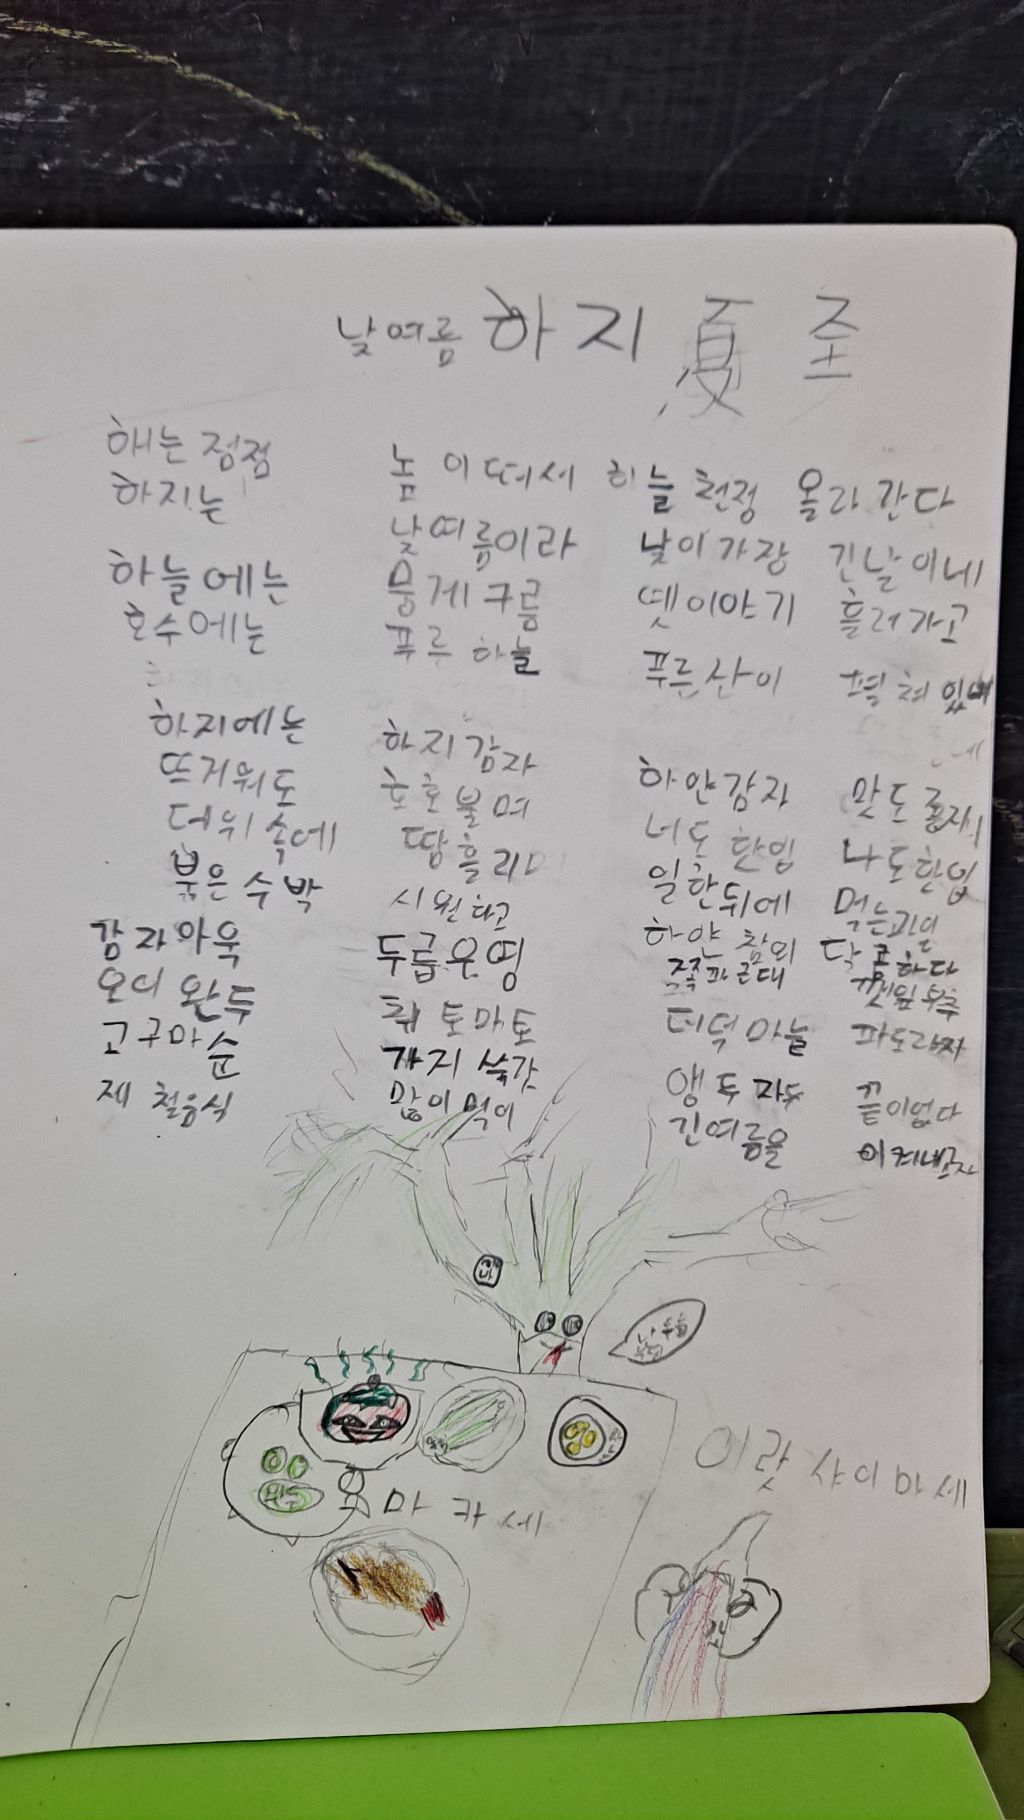 낮여름 하지 夏至
해는 정점 높이떠서 하늘 천정 올라간다
하지는 낮여름이라 낮이가장 긴날이네
하늘에는 뭉게구름 옛이야기 흘러가고
호수에는 푸른 하늘 푸른산이 펼쳐있네
하지에는 하지감자 하얀감자 맛도좋지
뜨거워도 호호불며 너도한입 나도한입
더위속에 땀흘리며 일한뒤에 먹는과일
붉은수박 시원하고 하얀참외 달콤하다
감자아욱 두릅우영 쪽파근대 깻잎부추
오이완두 취토마토 더덕마늘 파도라지
고구마순 가지쑥갓 앵두자두 끝이없다
제철음식 많이먹어 긴여름을 이겨내보자
나 두릅
이랏샤이마세
완두
오마카세